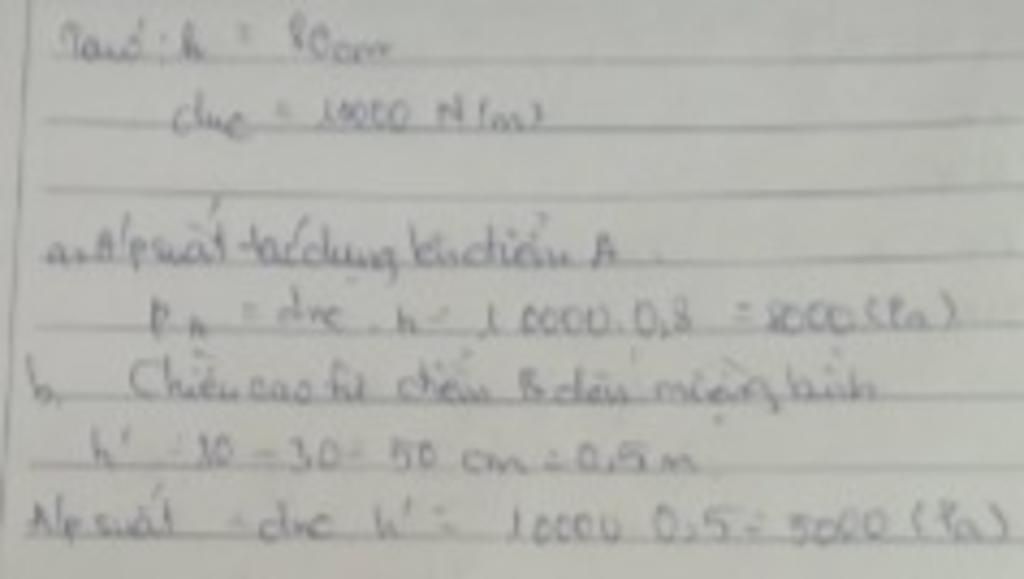 h = 80cm
dnc = 10000 N/m³
a. Áp suất tác dụng lên điểm A
PA = dnc . h = 10000.0,8 = 8000 (Pa)
b. Chiều cao từ điểm B đến miệng bình
h' = 80 - 30 = 50 cm = 0,5m
Áp suất = dnc h' = 10000 0,5 = 5000 (Pa)